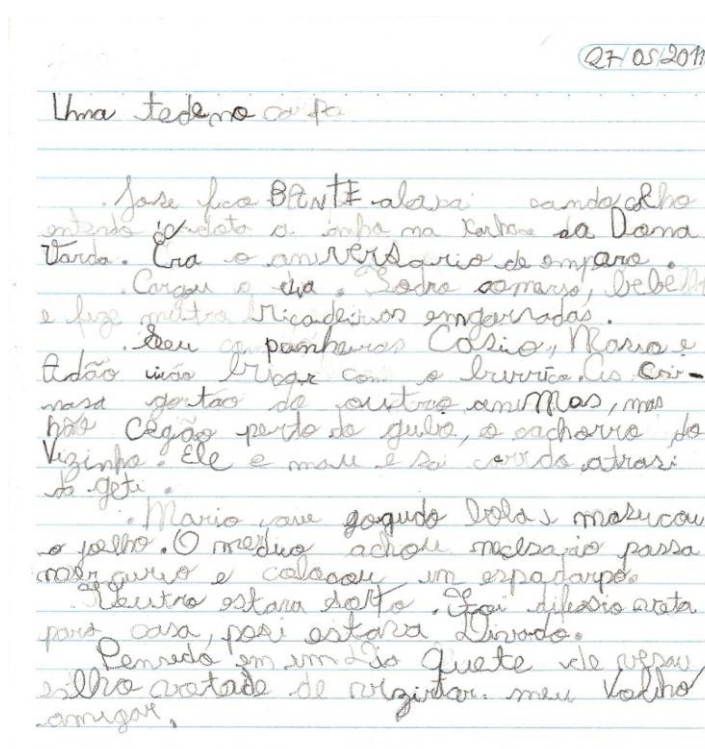 27/05/2011
Uma tede no campo
. Jose fico BANTE alova camdo colho
entendo o na da Dona
Vanda. Era o aniverSario de amparo.
. Cargou o dia. Todro comerso, bebell
e fize muitro bricadeirios emgarsadas.
. Seu companheiros Cosio, Maria e
Adão virão bricar com o burrico. As Cri-
nasa gortão de outros aniMas, mas
não Cegão perto do gubo, o cachorro do
Vizinho. Ele e mau e sai corrdo atrasi
da geti.
. Mario caiu gogudo bola e masucou
o joelho. O meduo achou necsaio passa
mercurio e colocou um espadarpo.
Neutro estava Sorto. Foi dificio
para casa, posi estava Divado.
Penredo em um Dia Quete de verau,
de vizirtar. meu Valho
amigar,